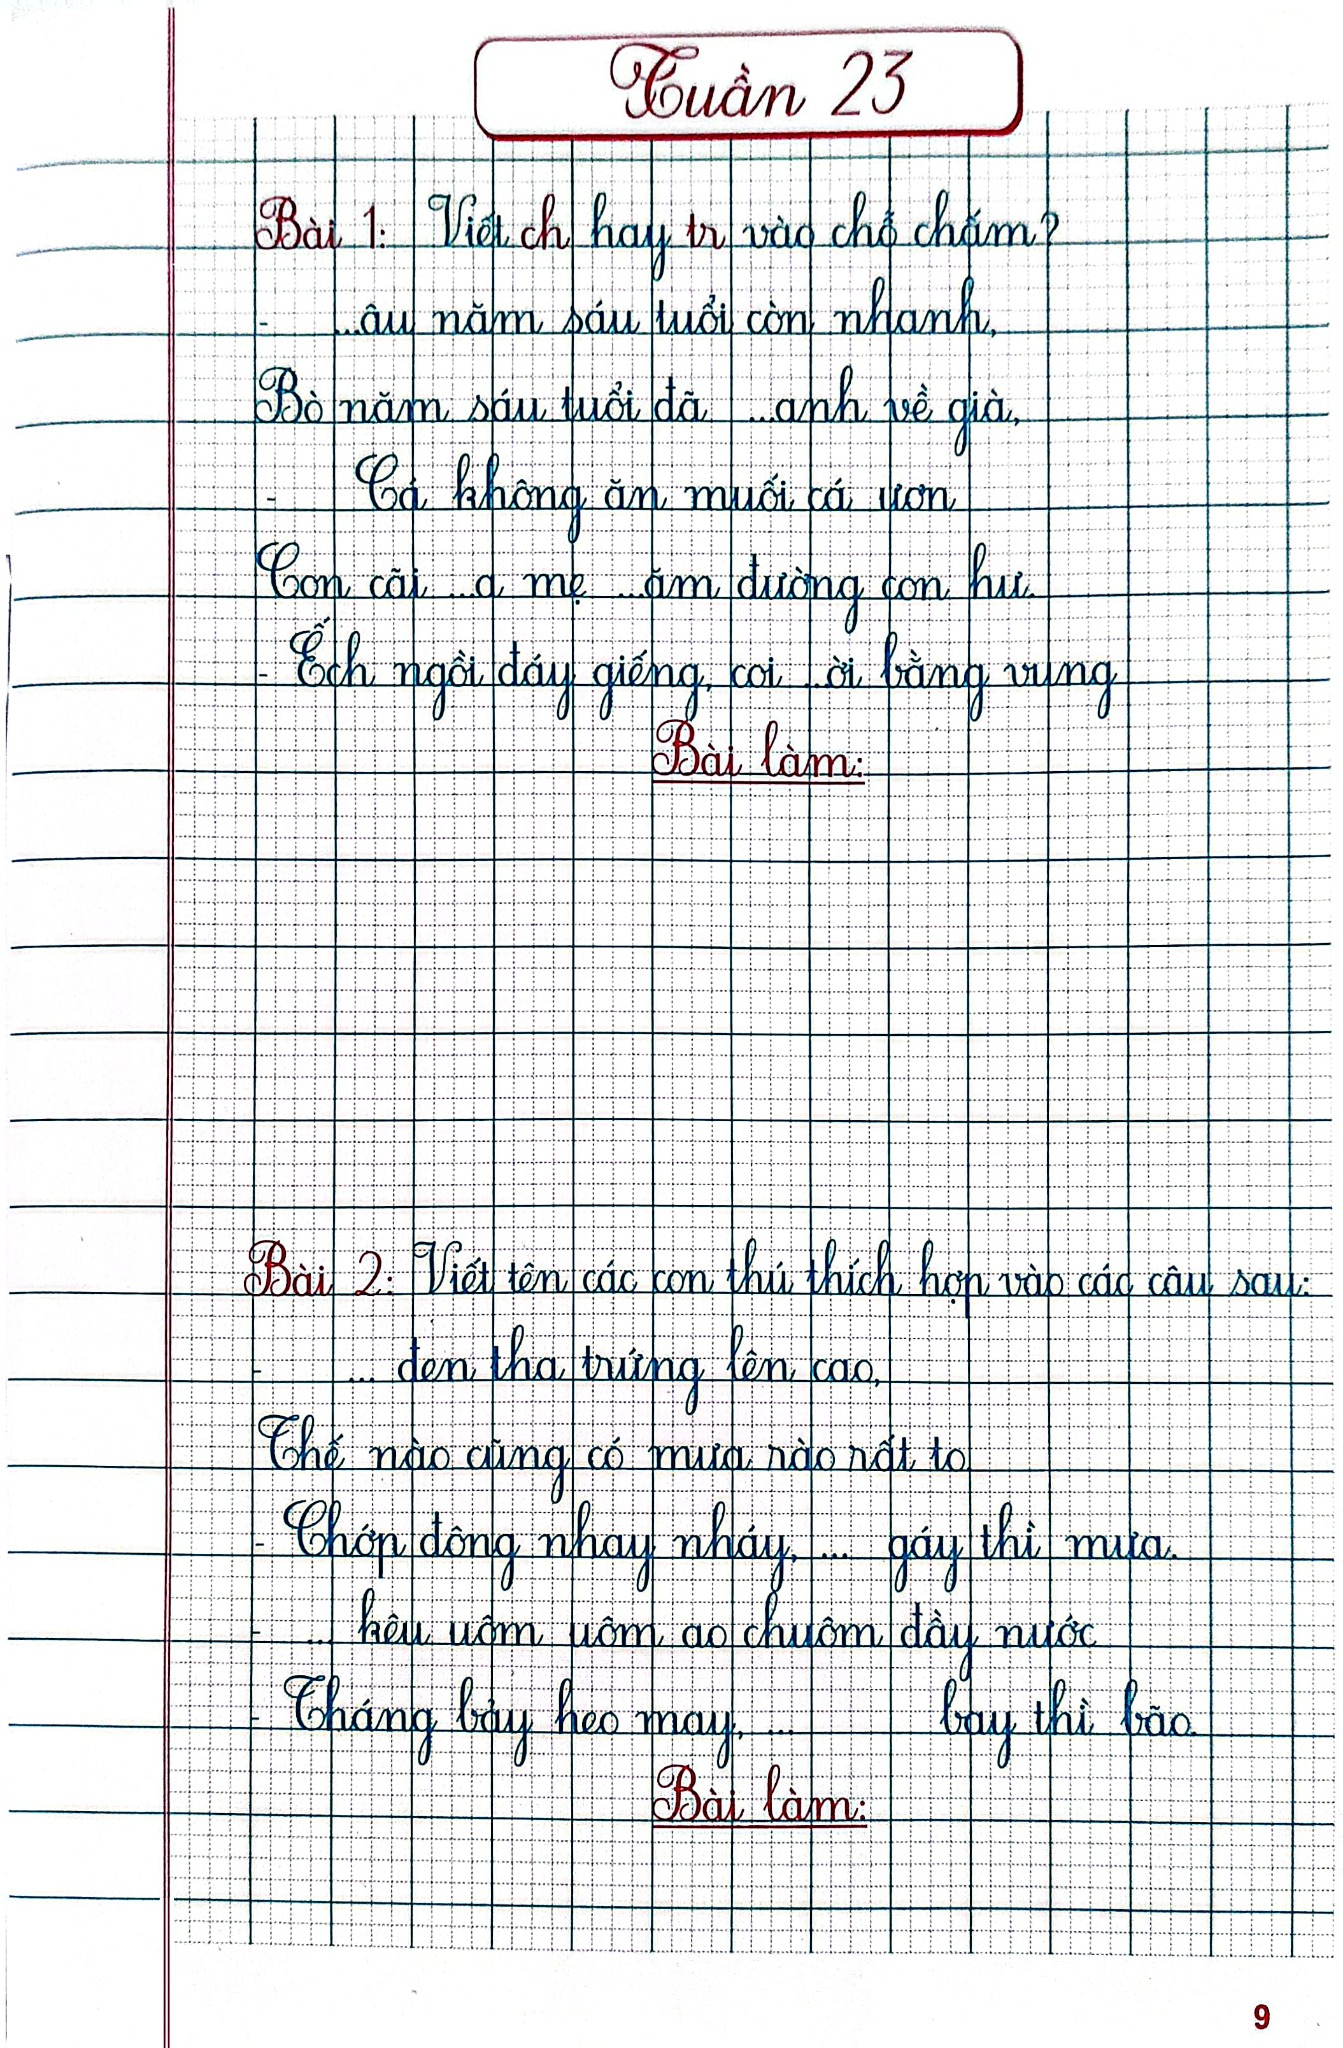 Tuần 23
Bài 1: Viết ch hay tr vào chỗ chấm?
- ...âu năm sáu tuổi còn nhanh,
Bò năm sáu tuổi đã ...anh về già,
- Cá không ăn muối cá ươn
Con cãi ...a mẹ ...ăm đường con hư.
- Ếch ngồi đáy giếng, coi ...ời bằng vung
Bài làm:
Bài 2: Viết tên các con thú thích hợp vào các câu sau:
- ... đen tha trứng lên cao,
Thế nào cũng có mưa rào rất to
- Chớp đông nhay nháy, ... gáy thì mưa.
- ... kêu uôm uôm ao chuôm đầy nước
- Tháng bảy heo may, ... bay thì bão.
Bài làm:
9